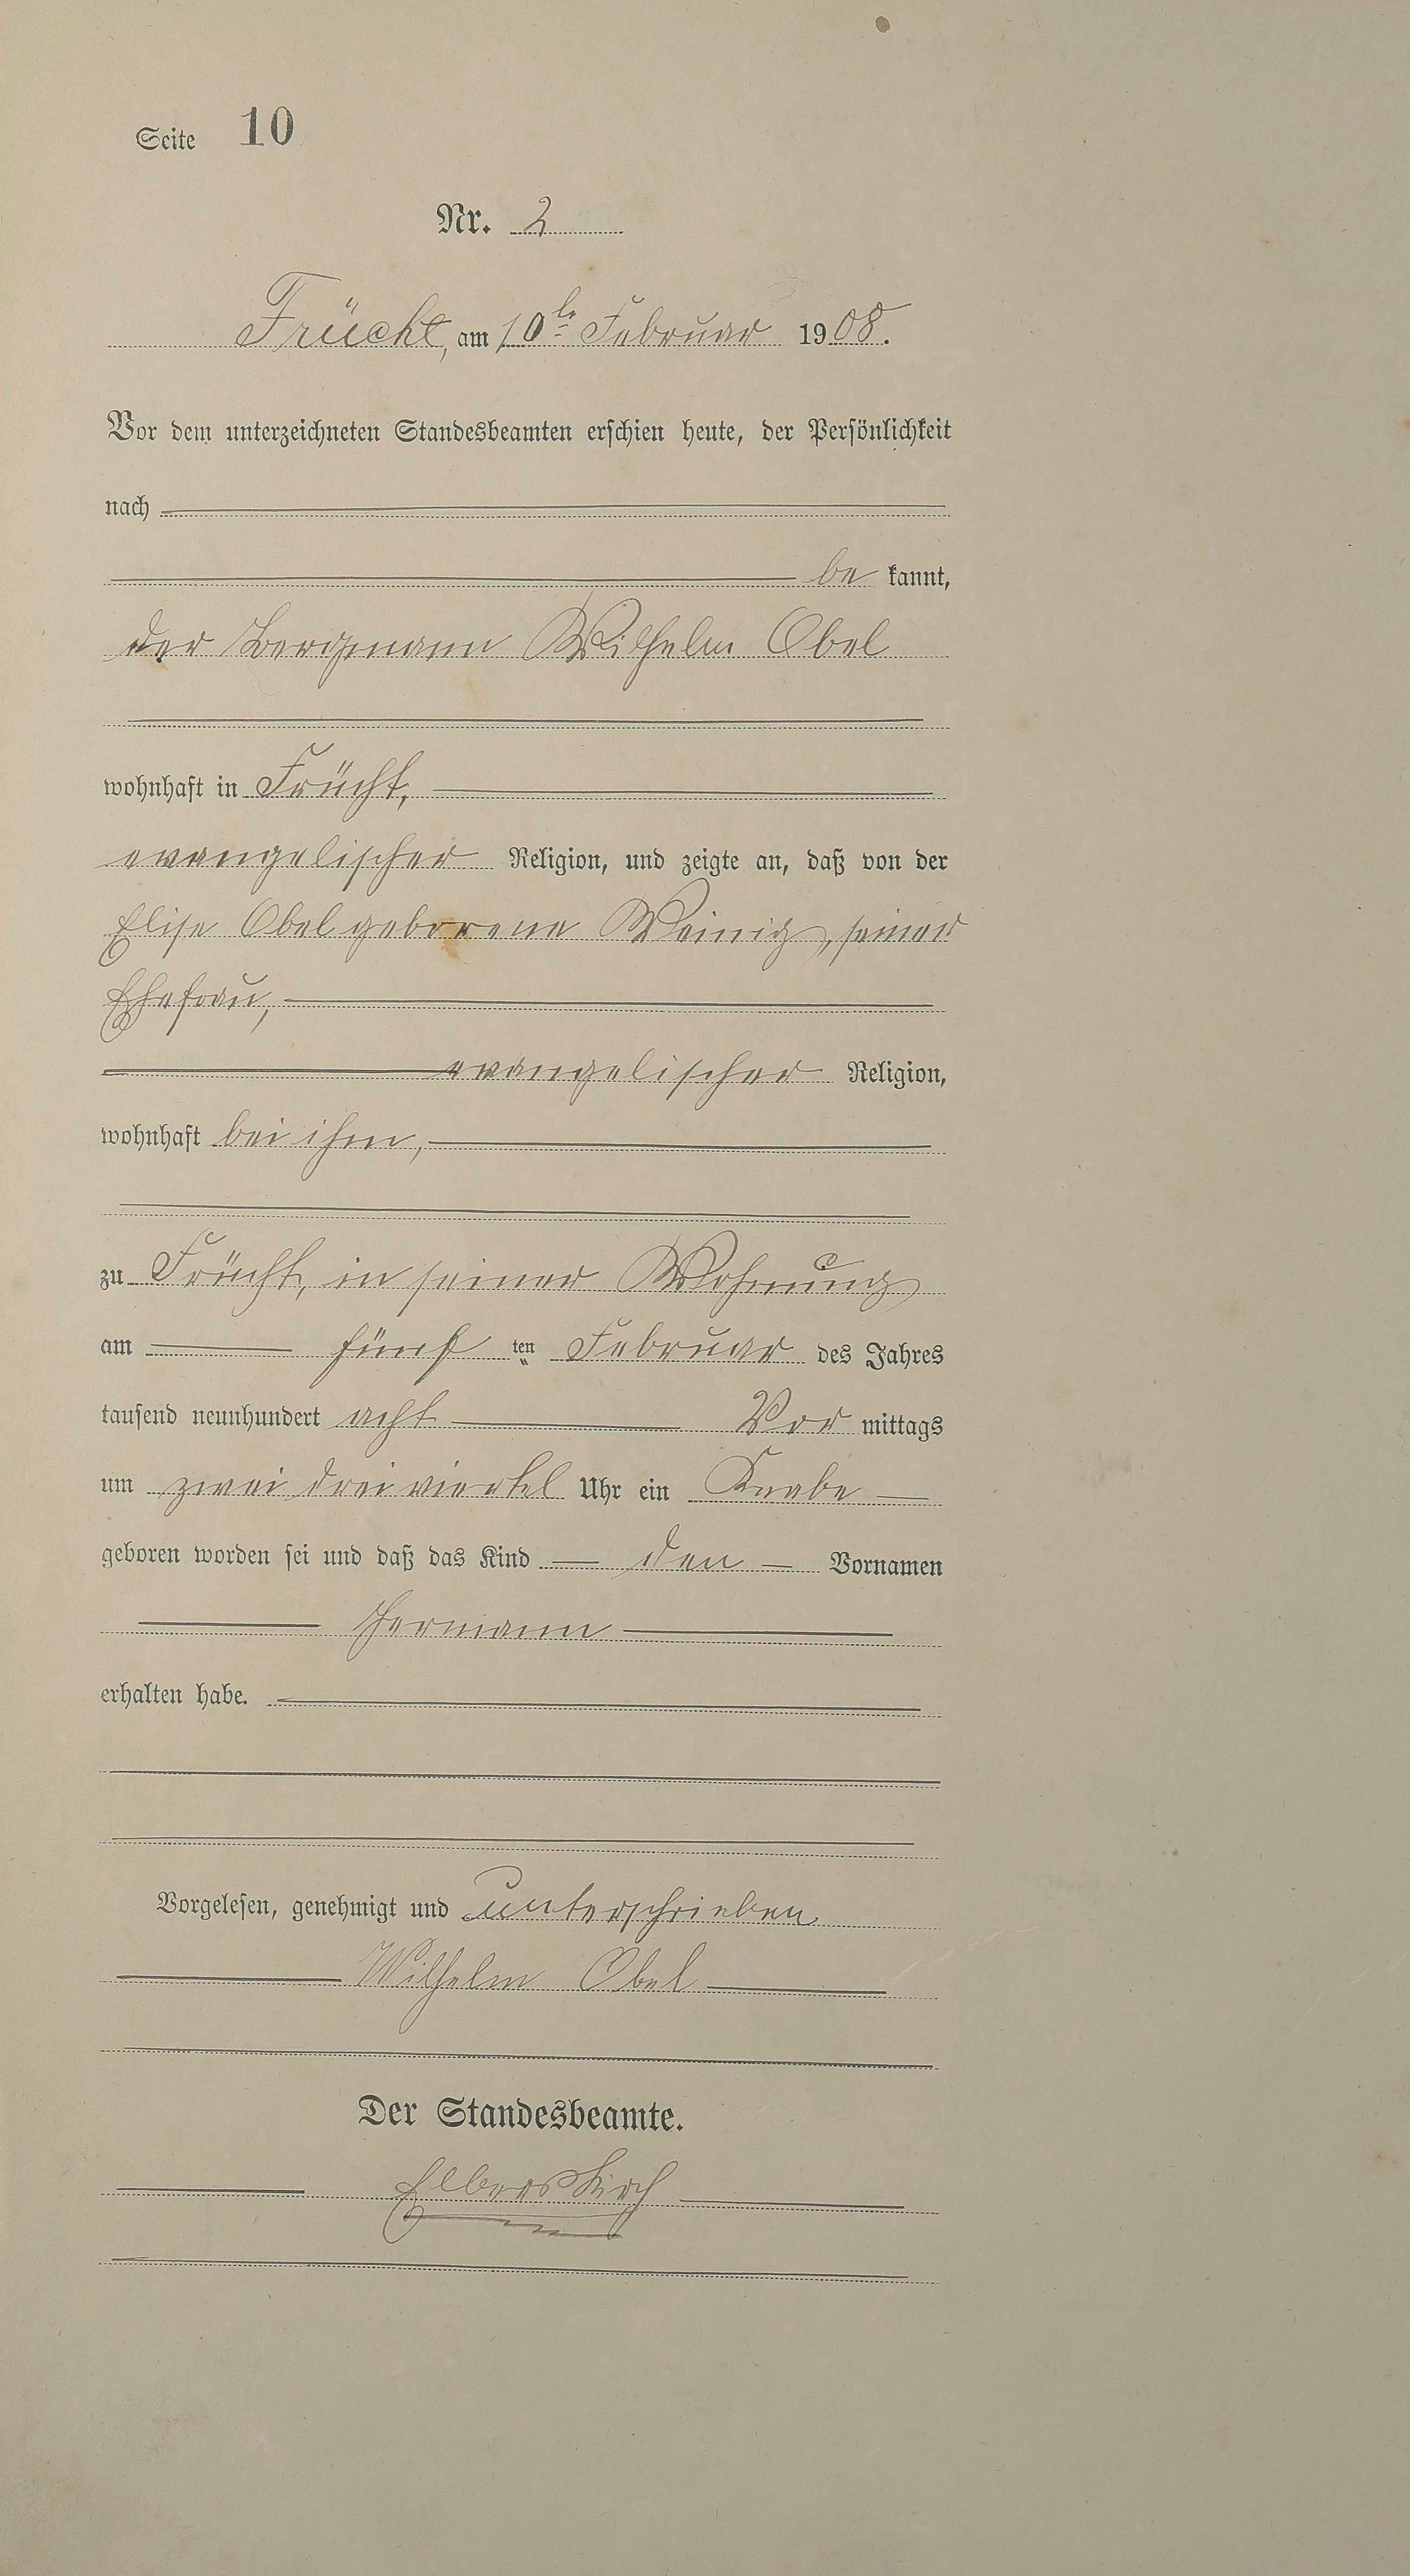 Seite 10
Nr. 2
Frücht, am 10te Februar 1908.
Vor dem unterzeichneten Standesbeamten erschien heute, der Persönlichkeit
nach
be kannt,
der Bergmann Wilhelm Obel
wohnhaft in Frücht,
evangelischer Religion, und zeigte an, daß von der
Elise Obel geborene Weinig, seiner
Ehefrau,
evangelischer Religion,
wohnhaft bei ihm,
zu Frücht, in seiner Wohnung
am fünf ten Februar des Jahres
tausend neunhundert acht Vor mittags
um zwei drei viertel Uhr ein Knabe
geboren worden sei und daß das Kind den Vornamen
Hermann
erhalten habe.
Vorgelesen, genehmigt und unterschrieben
Wilhelm Obel
Der Standesbeamte.
Elberskirch